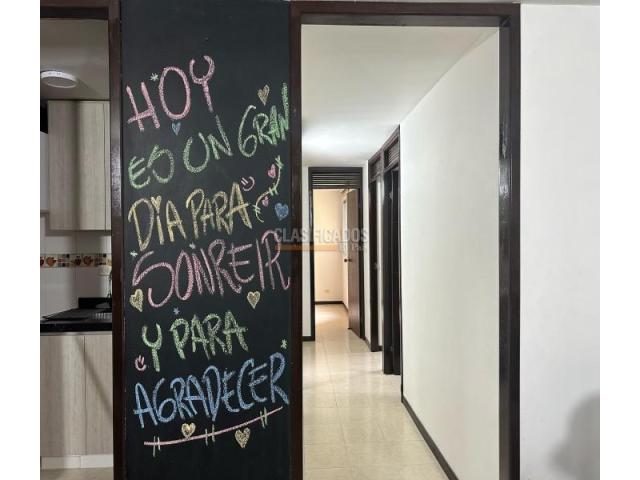 HOY
ES UN GRAN
DÍA PARA
SONREIR
Y PARA
AGRADECER
CLASIFICADOS
El País